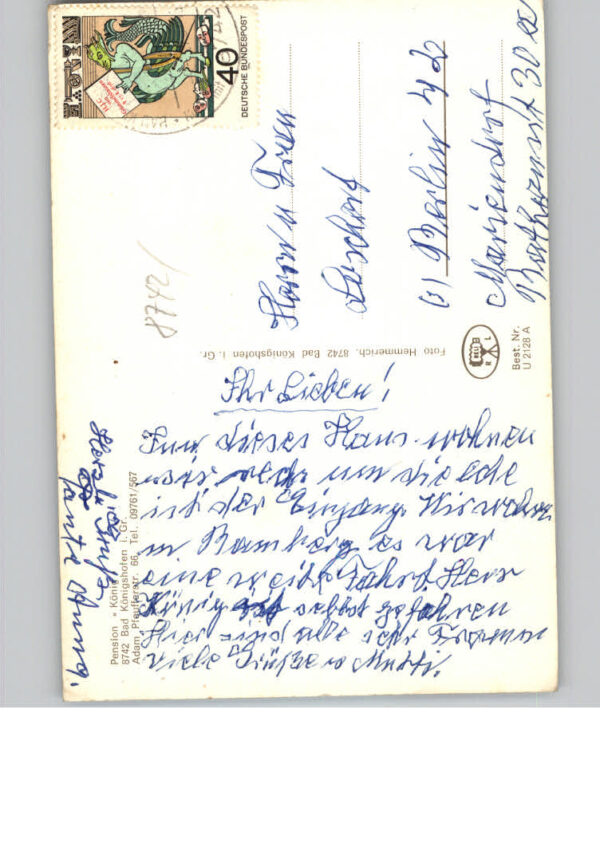 40
DEUTSCHE BUNDESPOST
8742/
Herrn u Frau
(1) Berlin 42
Mariendorf
30
Foto Hemmerich, 8742 Bad Königshofen i. Gr.
R L
Best. Nr.
U 2128 A
Ihr Lieben!
dieses Haus wohnen
wir um die Ecke
ist der Eingang. Wir
in Bamberg es war
eine weite Fahrt Herr
König selbst gefahren
Hier sind alle sehr
viele Grüße u Mutti.
Herzliche Grüße
Tante Anna.
Pension « König
8742 Bad Königshofen i. Gr.
Adam Pfeufferstr. 66, Tel. 09761/567